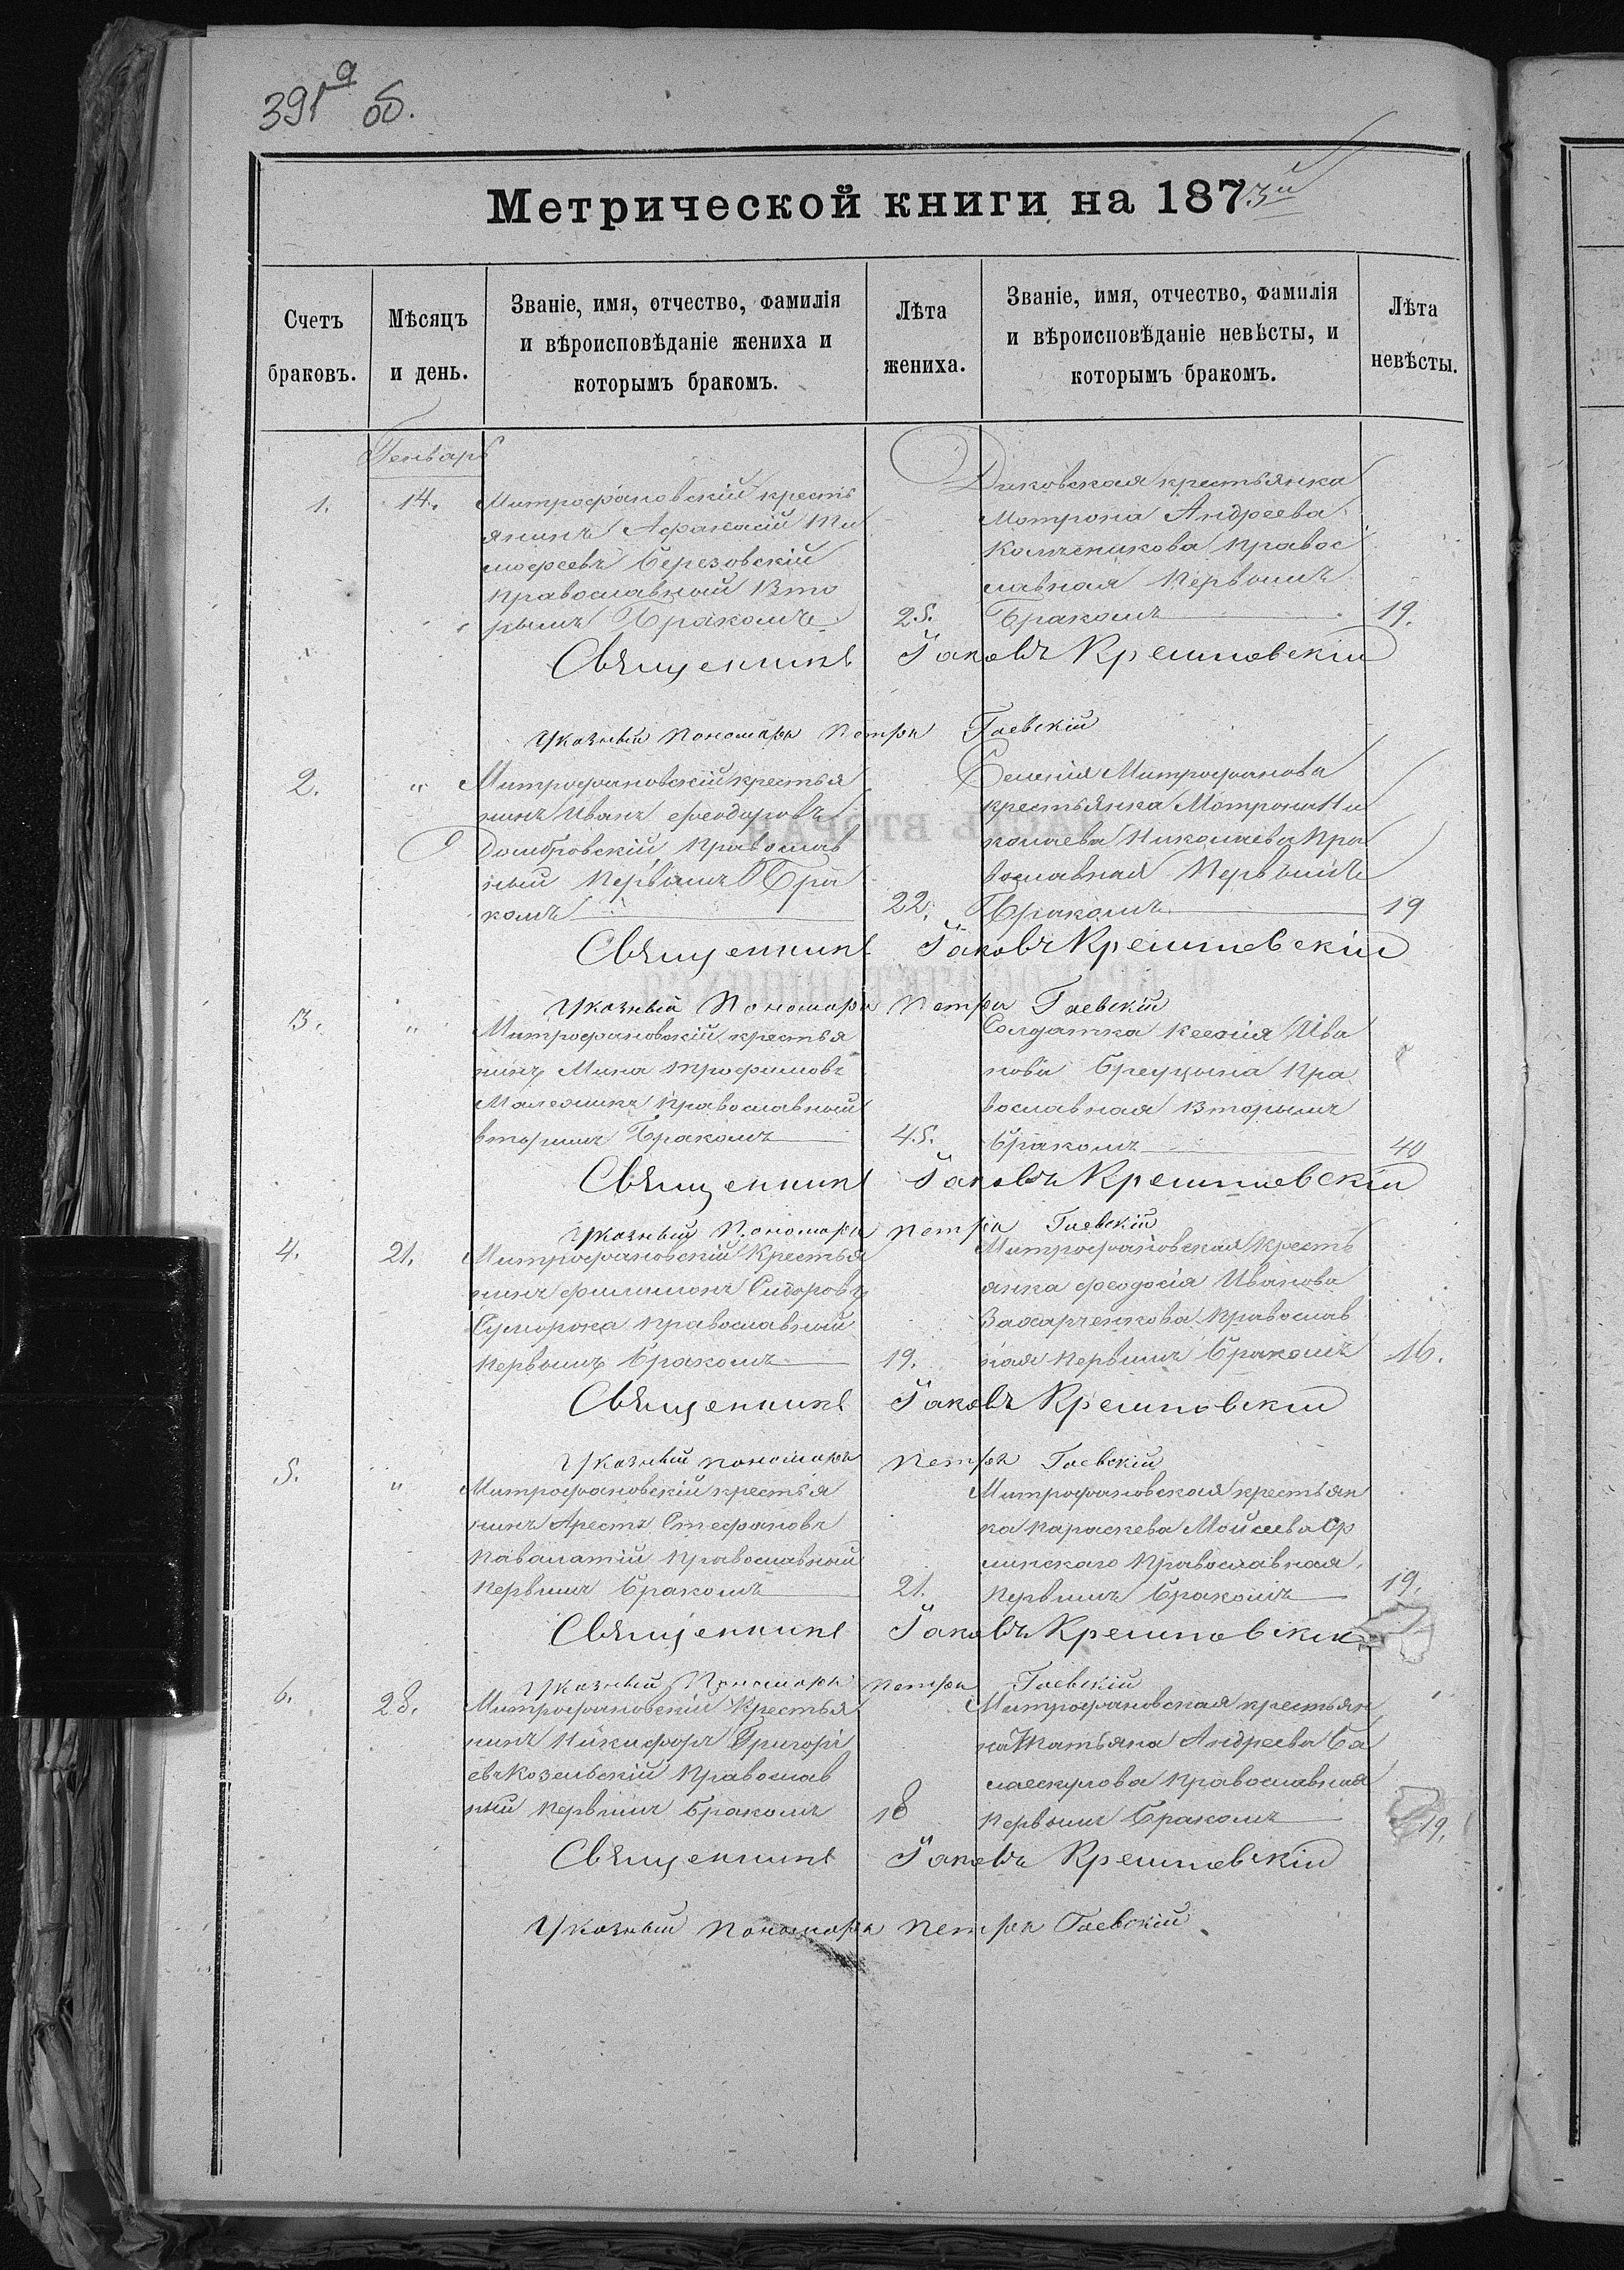 391а об.
Метрической книги на 1873й
Счетъ браковъ.
Мѣсяцъ и день.
Званіе, имя, отчество, фамилія
и вѣроисповѣданіе жениха и
которымъ бракомъ.
Лѣта жениха.
Званіе, имя, отчество, фамилія
и вѣроисповѣданіе невѣсты, и
которымъ бракомъ.
Лѣта невѣсты.
Генварь
1.
14.
Митрофановскій кресть
янинъ Афанасій Ти
мофеевъ Березовскій
православный Вто
рымъ Бракомъ
25.
Диковская крестьянка
Мотрона Андреева
правос
лавная Первымъ
Бракомъ
19.
Священникъ Іаковъ Крешновскій
Указный Пономарь Петръ Гаевскій
2.
"
Митрофановскій крестья
нинъ Иванъ Феодоровъ
Домбровскій, Православ
ный Первымъ Бра
комъ
22.
Селенія Митрофанова
крестьянка Мотрона Ни
колаева Николаева Пра
вославная Первымъ
Бракомъ
19
Священникъ Іаковъ Крешновскій
Указный Пономарь Петръ Гаевскій
3.
"
Митрофановскій крестья
нинъ Мина Трофимовъ
православный
вторымъ Бракомъ
45.
Солдатка Ксенія Ива
нова Пра
вославная Вторымъ
Бракомъ
40
Священникъ Іаковъ Крешновскій
Указный Пономарь Петръ Гаевскій
4.
21.
Митрофановскій Крестья
нинъ Филимонъ Сидоровъ
Суморока православный
первымъ Бракомъ
19.
Митрофановская Кресть
янка Феодосія Иванова
Захарченкова Православ
ная первымъ Бракомъ
16.
Священникъ Іаковъ Крешновскій
Указный пономарь Петръ Гаевскій
5.
"
Митрофановскій крестья
нинъ Арестъ Стефановъ
Паволатій Православный
Первымъ Бракомъ
21.
Митрофановская крестьян
ка Параскева Мойсеева Ор
линского Православная
Первымъ Бракомъ
19.
Священникъ Іаковъ Крешновскій
Указный Пономарь Петръ Гаевскій
6.
28.
Митрофановскій Крестья
нинъ Никифоръ Григорі
евъ Козельскій Православ
ный Первымъ Бракомъ
18
Митрофановская крестьян
ка Татьяна Андреева Ба
ласкулова Православная
Первымъ Бракомъ
19.
Священникъ Іаковъ Крешновскій
Указный Пономарь Петръ Гаевскій